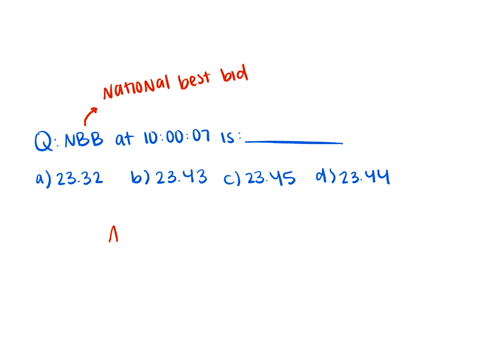 National best bid
Q: NBB at 10:00:07 is:
a) 23.32 b) 23.43 c) 23.45 d) 23.44